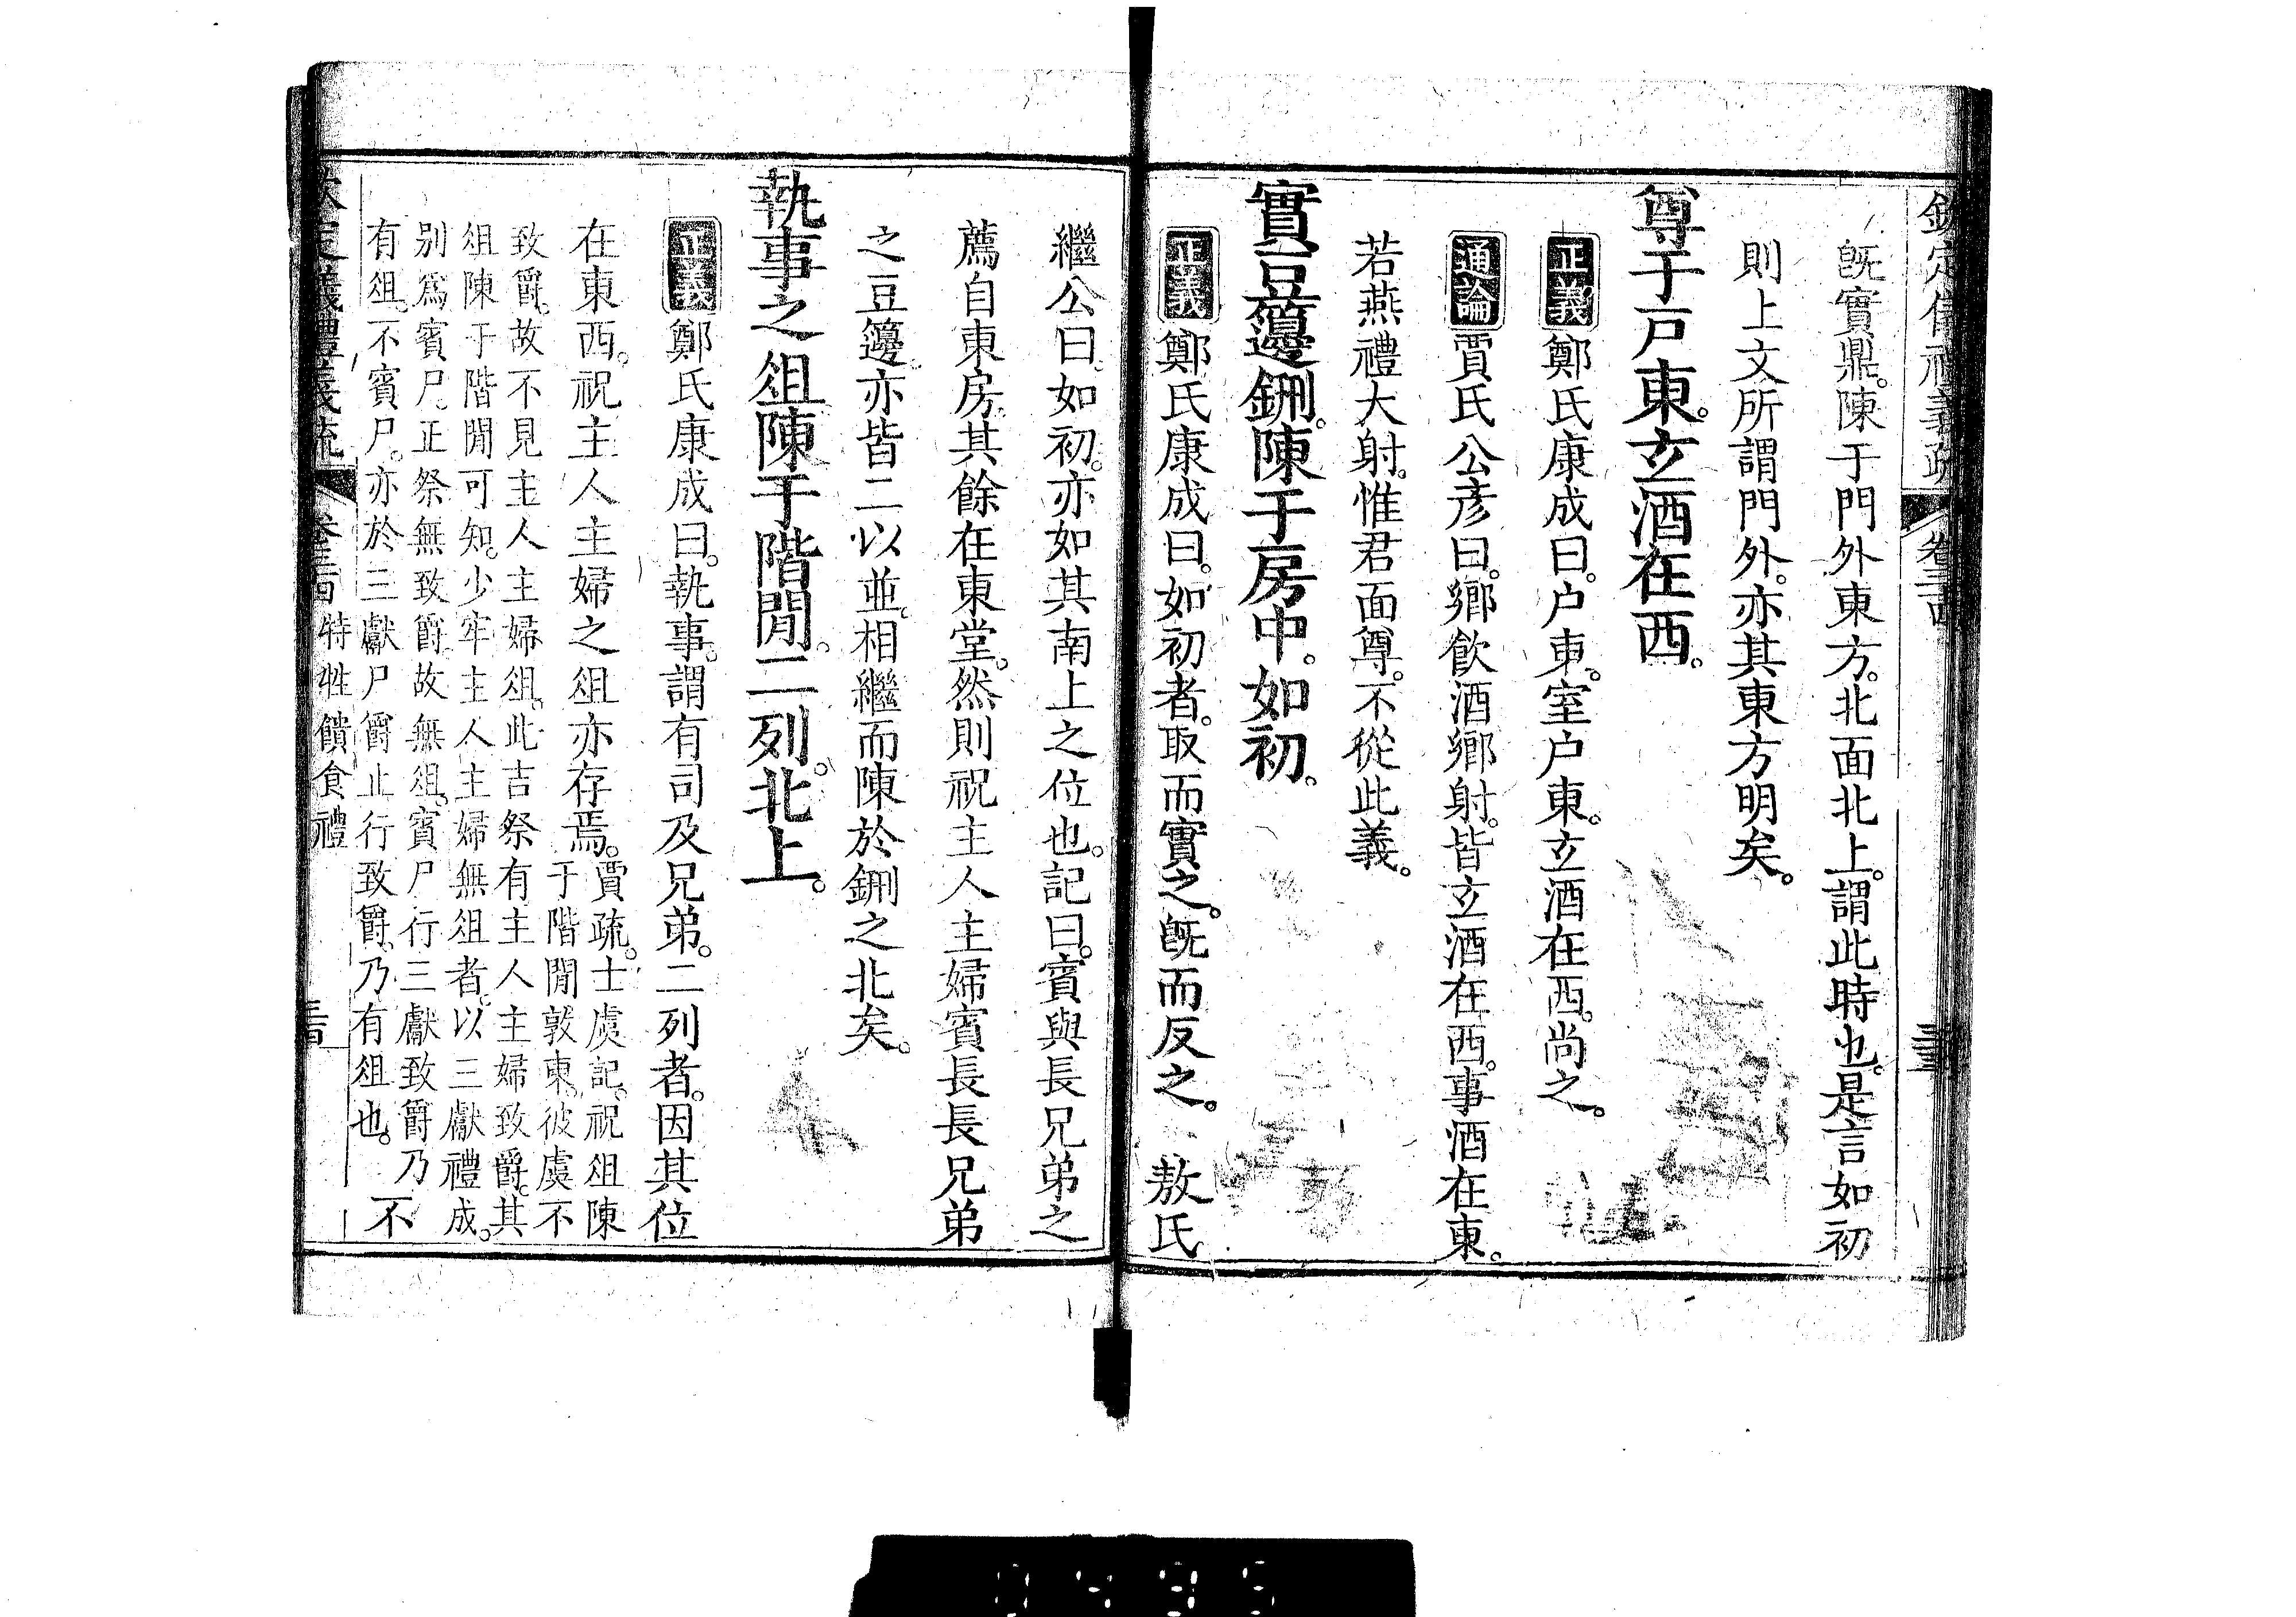 欽定儀禮義疏 卷三十四
既實鼎。陳于門外東方。北面北上。謂此時也。是言如初
則上文所謂門外。亦其東方明矣。
尊于戸東。玄酒在西。
正義 鄭氏康成曰。户東。室户東。玄酒在西。尚之。
通論 賈氏公彦曰。鄉飲酒鄉射。皆玄酒在西。事酒在東。
若燕禮大射。惟君面尊。不從此義。
實豆籩鉶。陳于房中。如初。
正義 鄭氏康成曰。如初者。取而實之。既而反之。 敖氏
繼公曰。如初。亦如其南上之位也。記曰。賓與長兄弟之
薦自東房。其餘在東堂。然則祝主人主婦賓長長兄弟
之豆籩。亦皆二以並。相繼而陳於鉶之北矣。
執事之俎陳于階閒。二列。北上。
正義 鄭氏康成曰。執事。謂有司及兄弟。二列者。因其位
在東西。祝主人主婦之俎亦存焉。賈疏。士虞記。祝俎陳
于階閒敦東。彼虞不
致爵。故不見主人主婦俎。此吉祭有主人主婦致爵。其
俎陳于階閒可知。少牢主人主婦無俎者。以三獻禮成。
别爲賓尸。正祭無致爵。故無俎。賓尸行三獻致爵乃
有俎。不賓尸。亦於三獻尸爵止行致爵。乃有俎也。 不
欽定儀禮義疏 卷三十四 特牲饋食禮